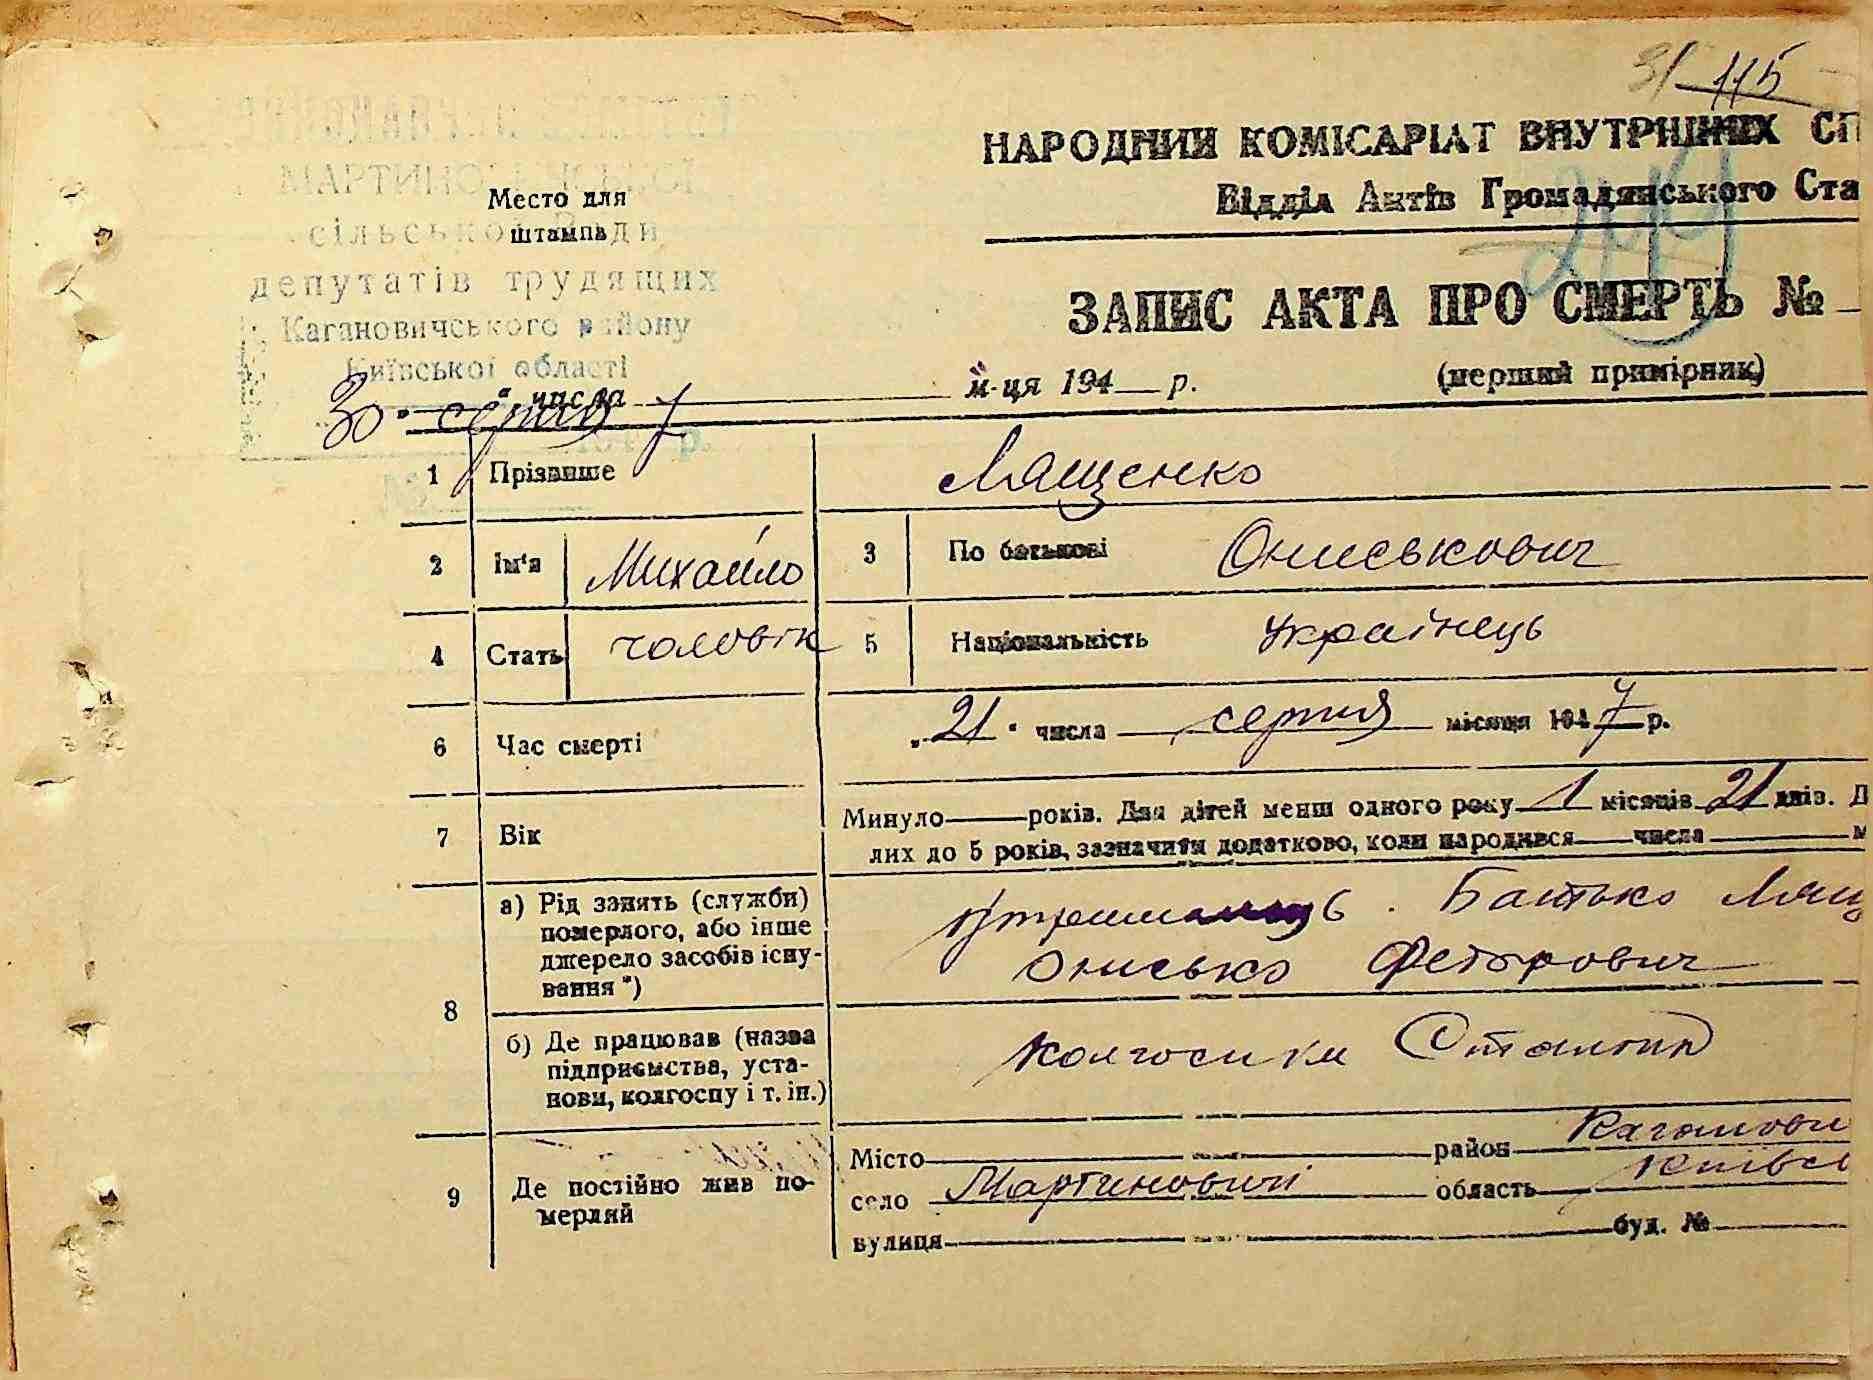 31 115
НАРОДНИЙ КОМІСАРІАТ ВНУТРІШНІХ СП
Відділ Актів Громадянського Ста
МАРТИНОВИЧСЬКОЇ
Место для
штампа
сільської Ради
депутатів трудящих
Кагановичського району
Київської області
ЗАПИС АКТА ПРО СМЕРТЬ №
(перший примірник)
30 " серпня числа 7 м-ця 194 р.
1 Прізвище Лященко
2 Ім'я Михайло 3 По батьковіОниськович
4 Стать чоловік 5 Національність Українець
6 Час смерті „21" числа серпня місяця 1947 р.
7 Вік Минуло років. Для дітей менш одного року 1 місяців 21 днів. Д
лих до 5 років, зазначити додатково, коли народився числа м
8 а) Рід занять (служби)
померлого, або інше
джерело засобів існу-
вання *)
Батько Лящ
Онисько Федорович
б) Де працював (назва
підприємства, уста-
нови, колгоспу і т. ін.)
9 Де постійно жив по-
мерлий
Місто район Каганови
село Мартиновичі область Київсь
вулиця буд. №